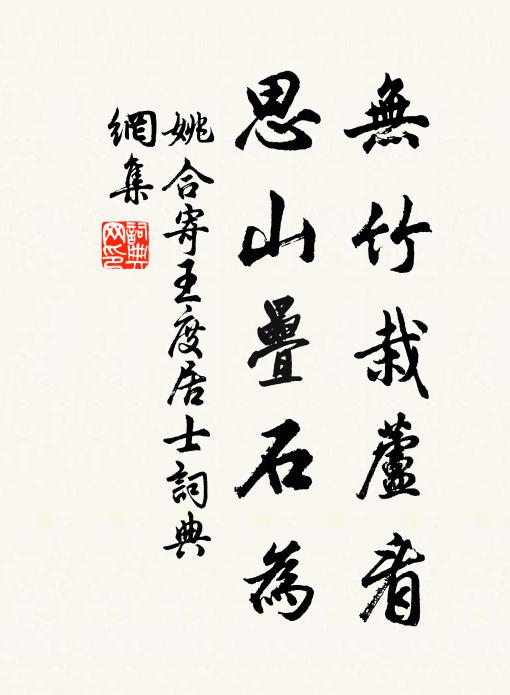 無竹栽蘆看
思山疊石為
姚合寄王度居士詞典
網集
詞典
网印